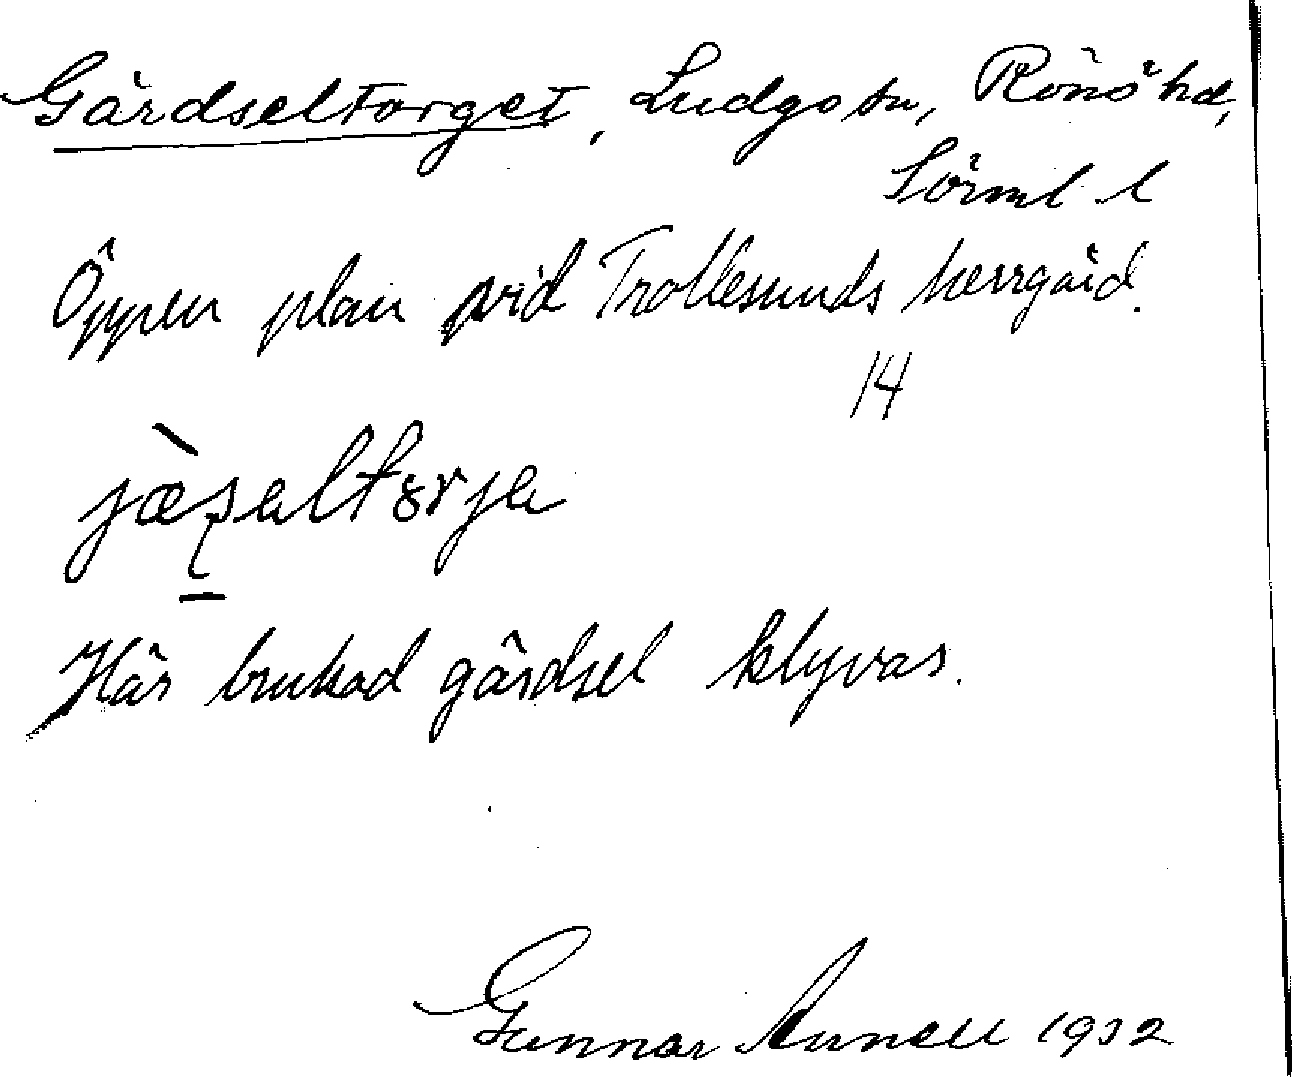 Gärdseltorget, Ludgo sn, Rönö hd,
Sörml. l
Öppen plan vid Trollesunds herrgård.
14
jæ̀ṣaltɤrja
Här brukad gärdsel klyvas.
Gunnar 1932